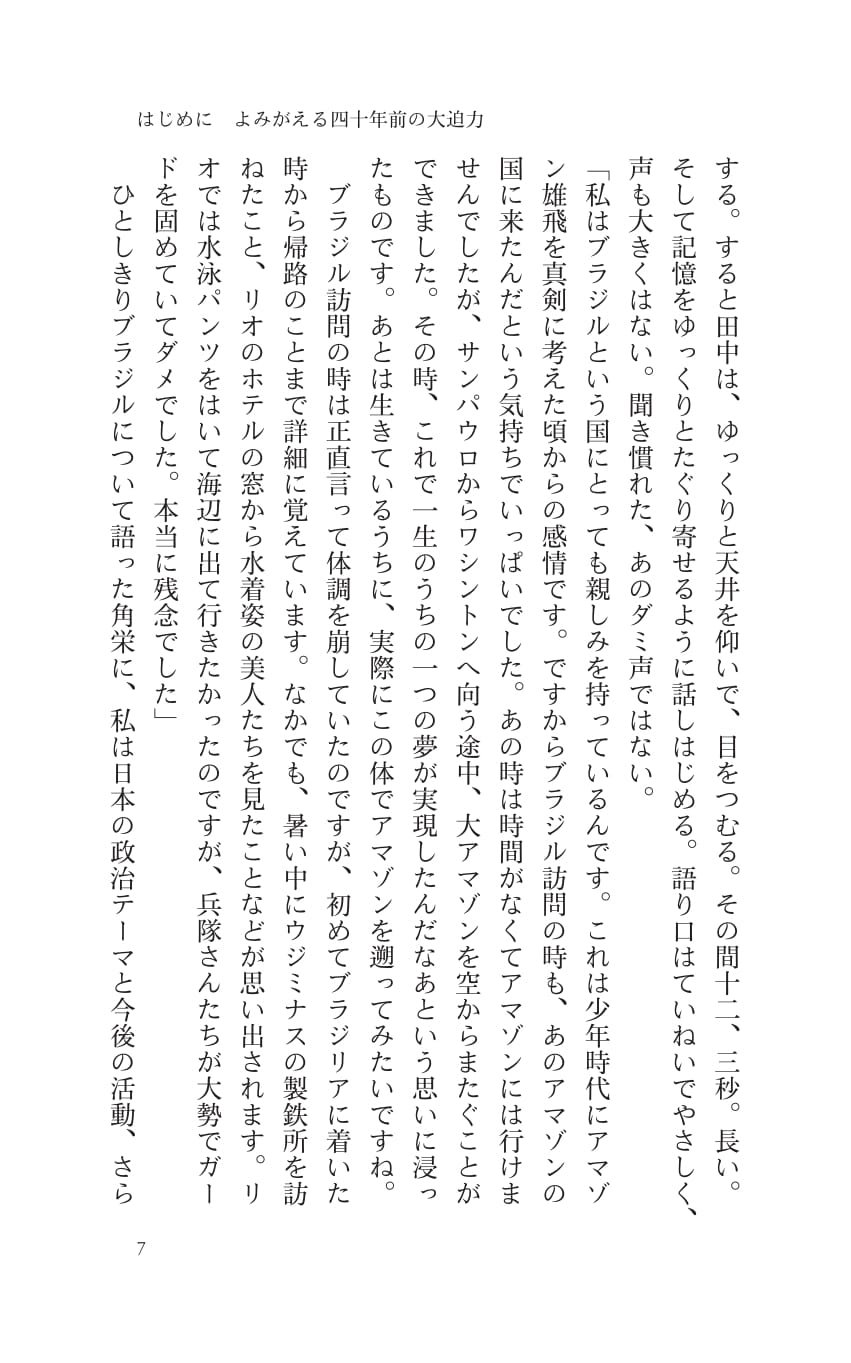 はじめに　よみがえる四十年前の大迫力
する。すると田中は、ゆっくりと天井を仰いで、目をつむる。その間十二、三秒。長い。
そして記憶をゆっくりとたぐり寄せるように話しはじめる。語り口はていねいでやさしく、
声も大きくはない。聞き慣れた、あのダミ声ではない。
「私はブラジルという国にとっても親しみを持っているんです。これは少年時代にアマゾ
ン雄飛を真剣に考えた頃からの感情です。ですからブラジル訪問の時も、あのアマゾンの
国に来たんだという気持ちでいっぱいでした。あの時は時間がなくてアマゾンには行けま
せんでしたが、サンパウロからワシントンへ向う途中、大アマゾンを空からまたぐことが
できました。その時、これで一生のうちの一つの夢が実現したんだなあという思いに浸っ
たものです。あとは生きているうちに、実際にこの体でアマゾンを遡ってみたいですね。
　ブラジル訪問の時は正直言って体調を崩していたのですが、初めてブラジリアに着いた
時から帰路のことまで詳細に覚えています。なかでも、暑い中にウジミナスの製鉄所を訪
ねたこと、リオのホテルの窓から水着姿の美人たちを見たことなどが思い出されます。リ
オでは水泳パンツをはいて海辺に出て行きたかったのですが、兵隊さんたちが大勢でガー
ドを固めていてダメでした。本当に残念でした」
　ひとしきりブラジルについて語った角栄に、私は日本の政治テーマと今後の活動、さら
7